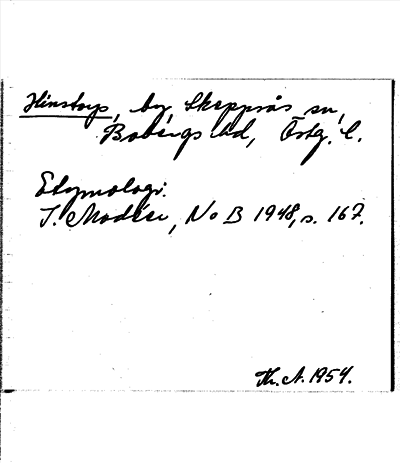 Hinstorp, by Skeppsås sn,
Bobergs hd, Östg. l.
Etymologi:
I. Modéer, NoB 1948, s. 167.
Th. A. 1954.